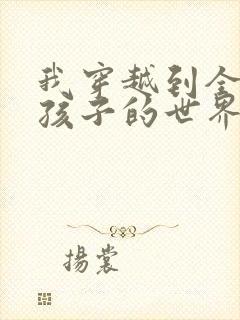 我穿越到全
孩子的世界
揚裳